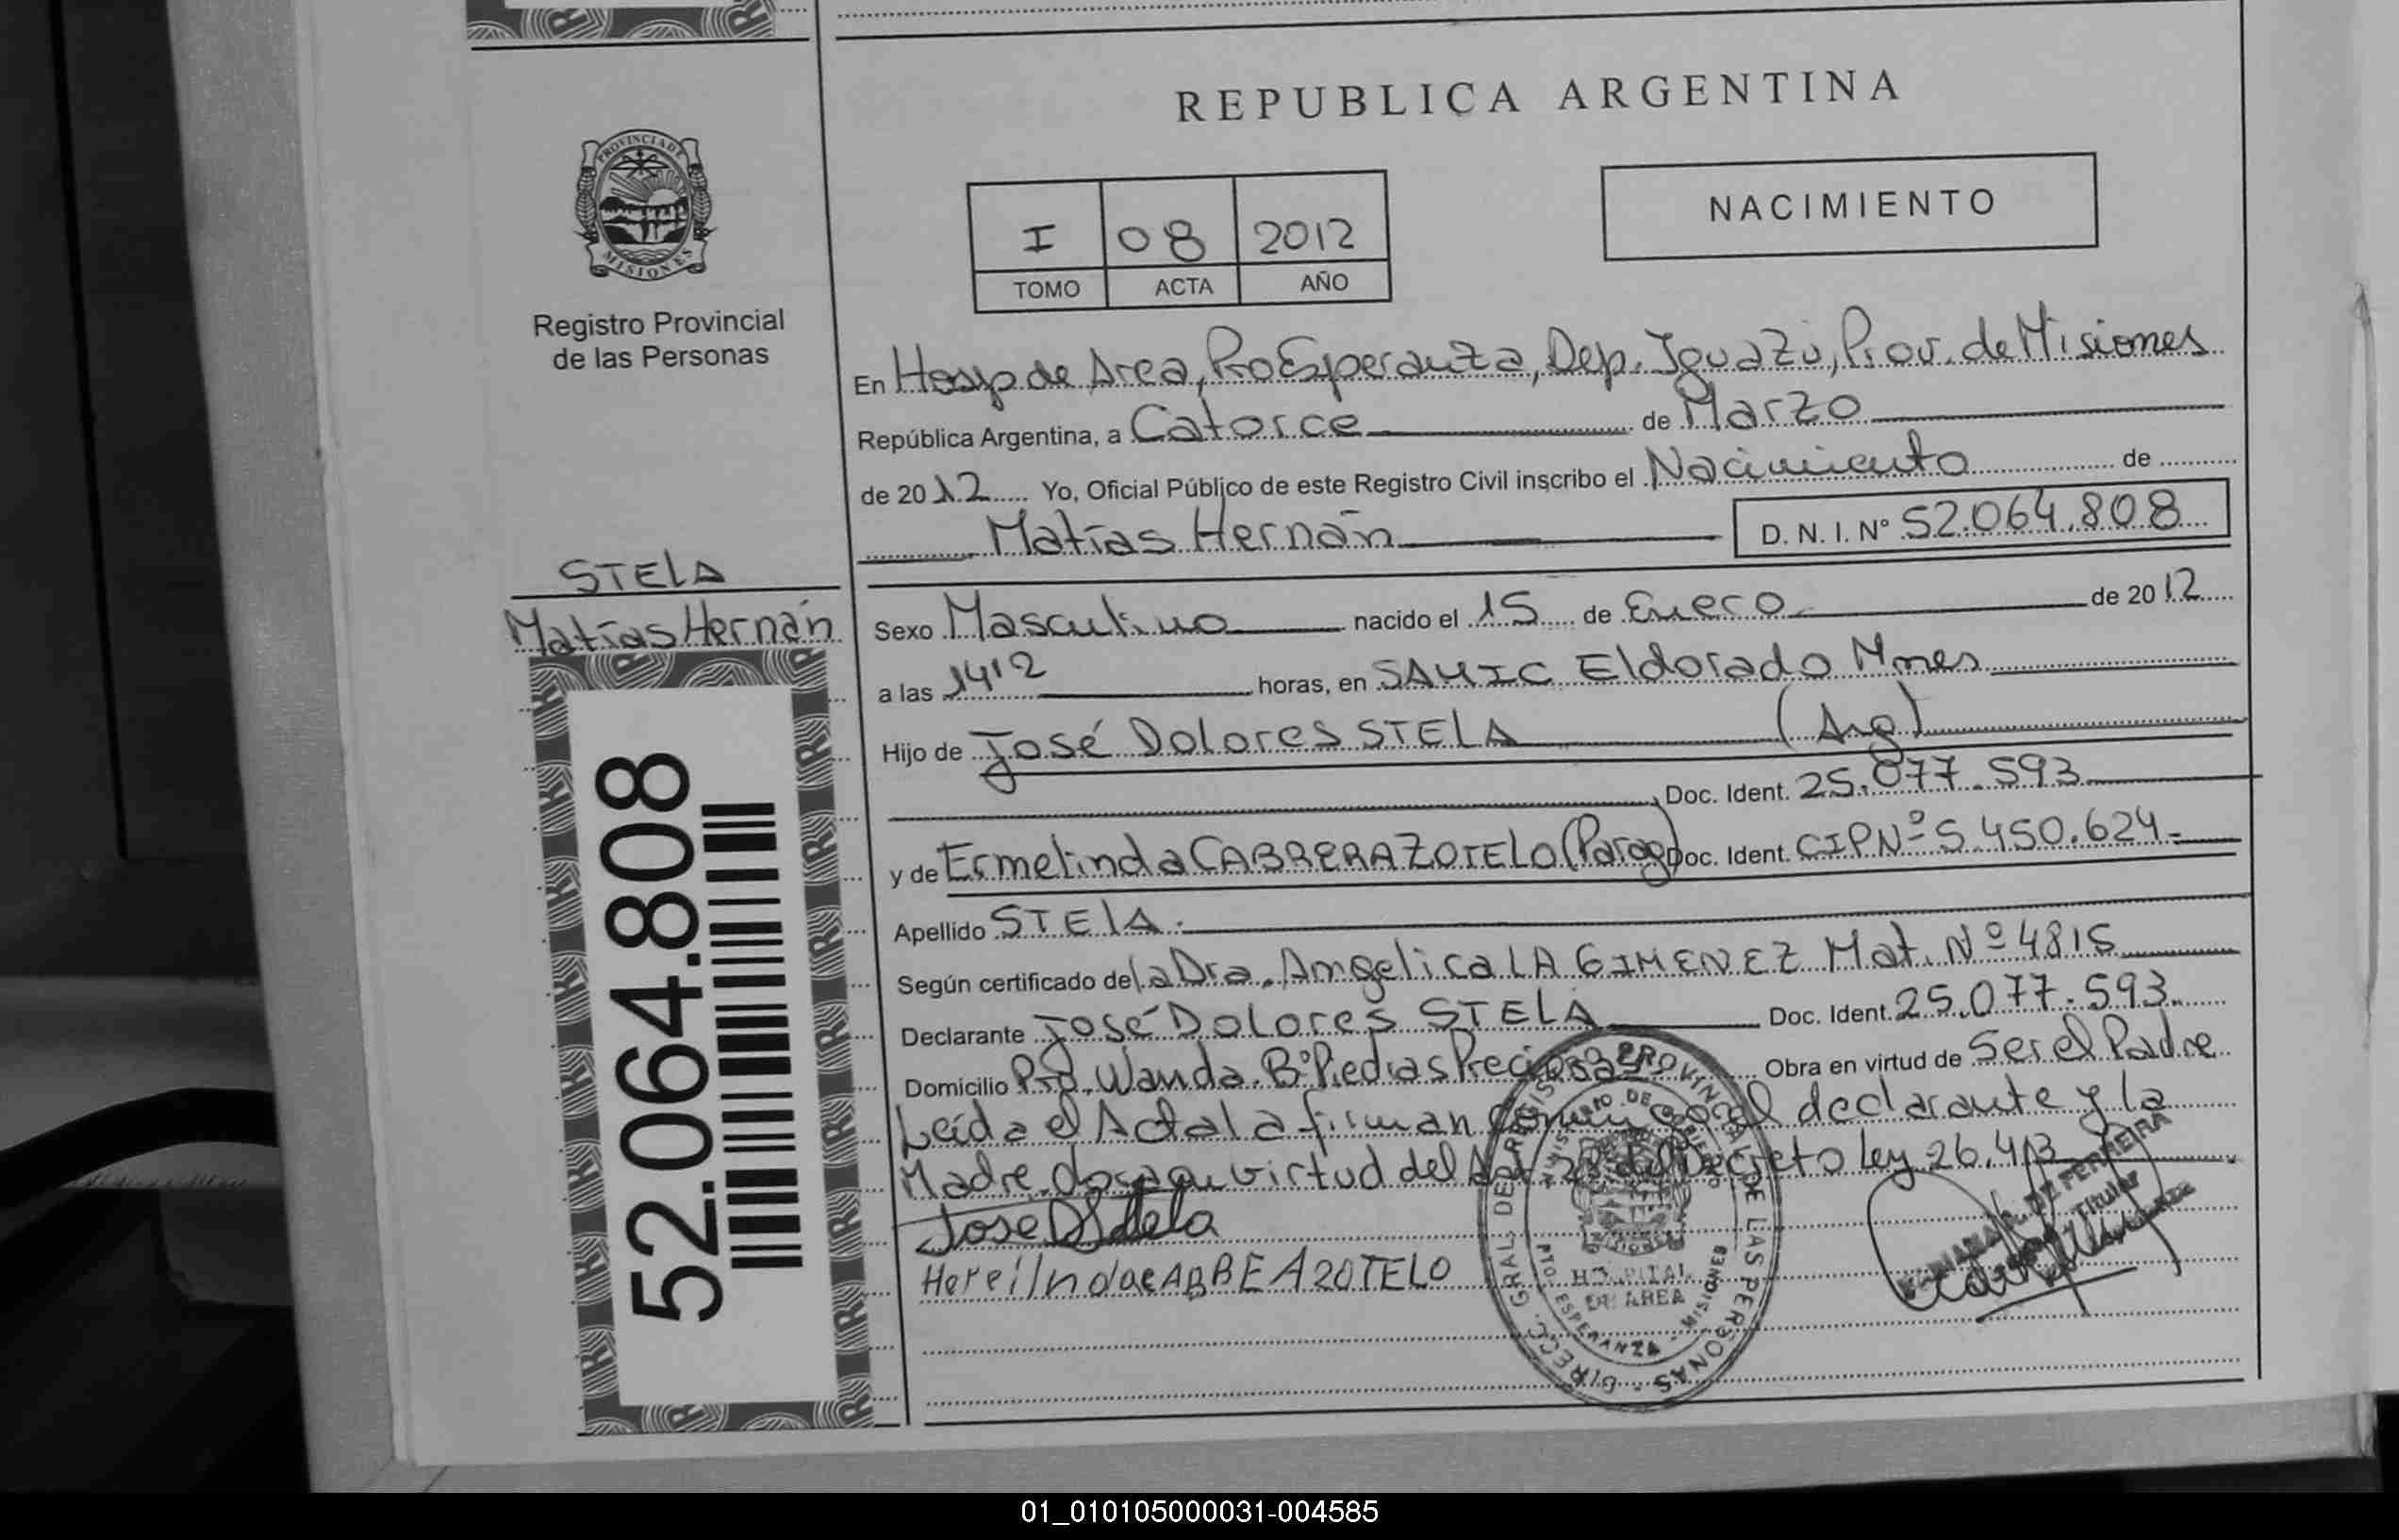 REPUBLICA ARGENTINA
PROVINCIA DE
MISIONES
Registro Provincial
de las Personas
I 08 2012
TOMO ACTA AÑO
NACIMIENTO
En Hosp de Area, Pto Esperanza, Dep. Iguazú, Prov. de Misiones
República Argentina, a Catorce de Marzo
de 2012 Yo, Oficial Público de este Registro Civil inscribo el Nacimiento de
Matías Hernán D. N. I. Nº 52.064.808
STELA
Matías Hernán
52.064.808
Sexo Masculino nacido el 15 de Enero de 2012
a las 1412 horas, en SAMIC Eldorado Mnes
Hijo de José Dolores STELA (Arg)
Doc. Ident. 25.077.593
y de Ermelinda CABRERA ZOTELO (Parag) Doc. Ident. CIPNº 5.450.624-
Apellido STELA.
Según certificado de la Dra. Angelica LA GIMENEZ Mat. Nº 4815
Declarante José Dolores STELA Doc. Ident. 25.077.593.
Domicilio Pto. Wanda. Bº Piedras Preciosas Obra en virtud de Ser el Padre
Leída el Acta la firman conmigo el declarante y la
Madre del Decreto ley 26.413
virtud del Art 28
Jose D Stela
HereilndaeABBEAZOTELO
DIRECC. GRAL. DEL REGISTRO PROVINCIAL DE LAS PERSONAS
MINISTERIO DE GOBIERNO
MISIONES
HOSPITAL
DE AREA
PTO ESPERANZA - MISIONES
DE FERREIRA
Titular
01_010105000031-004585